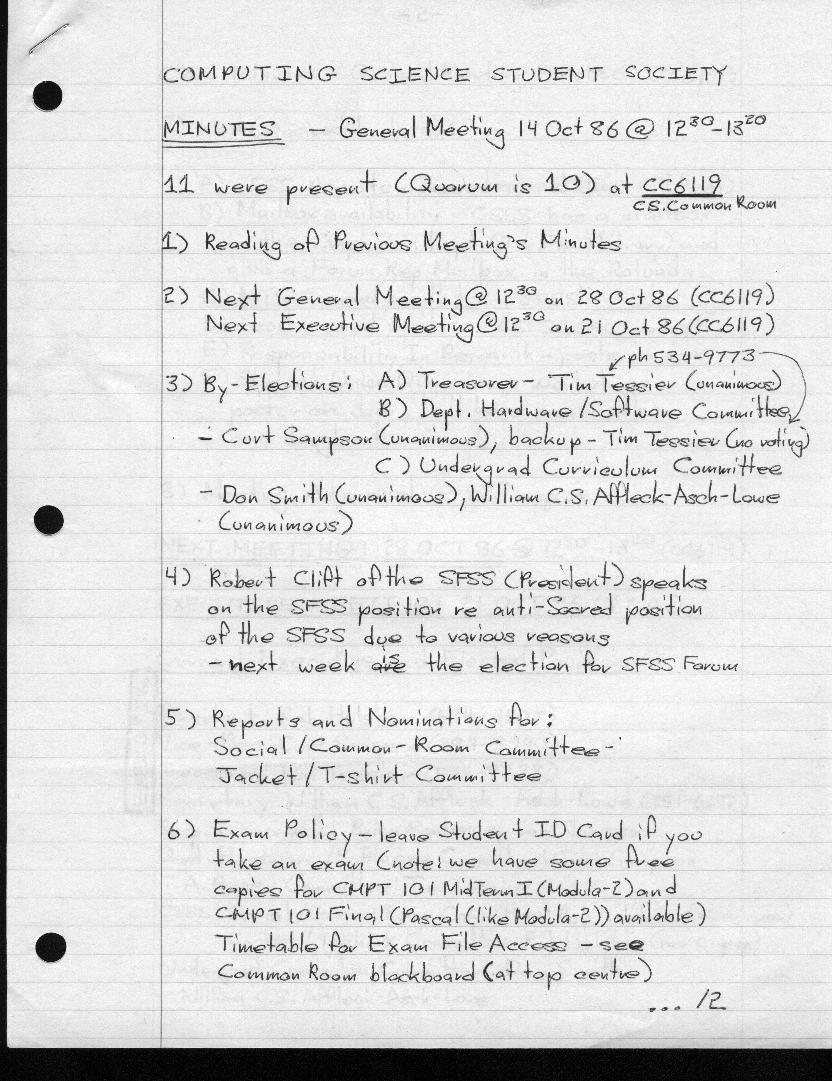 COMPUTING SCIENCE STUDENT SOCIETY
MINUTES - General Meeting 14 Oct 86 @ 12³⁰-13²⁰
11 were present (Quorum is 10) at CC6119
CS. Common Room
1) Reading of Previous Meeting's Minutes
2) Next General Meeting @ 12³⁰ on 28 Oct 86 (CC6119)
Next Executive Meeting @ 12³⁰ on 21 Oct 86 (CC6119)
ph 534-9773
3) By-Elections: A) Treasurer - Tim Tessier (unanimous)
B) Dept. Hardware/Software Committee
- Curt Sampson (unanimous), backup - Tim Tessier (no voting)
C) Undergrad Curriculum Committee
- Don Smith (unanimous), William C.S. Affleck-Asch-Lowe
(unanimous)
4) Robert Clift of the SFSS (President) speaks
on the SFSS position re anti-Socred position
of the SFSS due to various reasons
- next week is the election for SFSS Forum
5) Reports and Nominations for:
Social/Common-Room Committee -
Jacket/T-shirt Committee
6) Exam Policy - leave Student ID Card if you
take an exam (note: we have some free
copies for CMPT 101 MidTerm I (Modula-2) and
CMPT 101 Final (Pascal (like Modula-2)) available)
Timetable for Exam File Access - see
Common Room blackboard (at top centre)
... /2